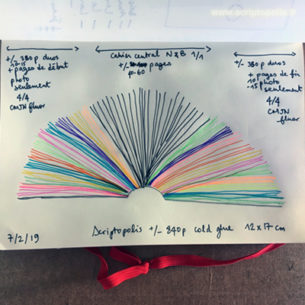 www.scriptopolis.fr
+/- 380p duos
+ pages de début
photo
seulement
4/4
CMJN
fluor
Cahier central N&B 1/1
+/- pages
p. 60
+/- 380p duos
+ pages de fin
photo
seulement
4/4
CMJN
fluor
7/2/19
Scriptopolis +/- 840p cold glue 12x17 cm